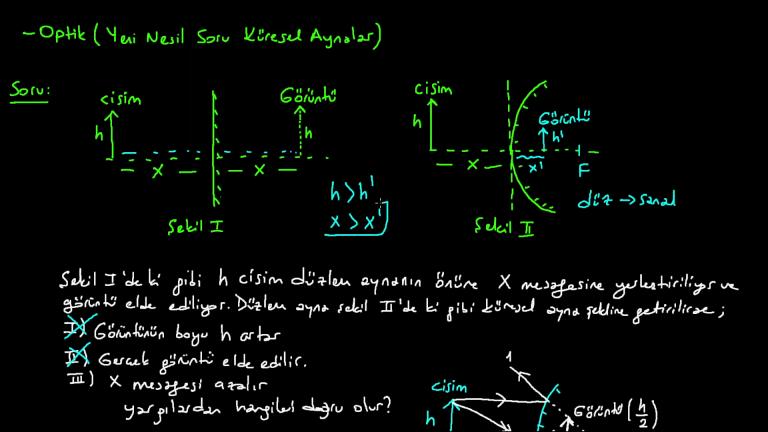 - Optik ( Yeni Nesil Soru Küresel Aynalar)
Soru:
Cisim
h
x
x
Görüntü
h
Şekil I
h > h'
x > x'
Cisim
h
x
Görüntü
h'
x'
F
düz → sanal
Şekil II
Şekil I'deki gibi h cisim düzlem aynanın önüne X mesafesine yerleştiriliyor ve
görüntü elde ediliyor. Düzlem ayna şekil II'deki gibi küresel ayna şekline getirilirse;
I) Görüntünün boyu h artar
II) Gerçek görüntü elde edilir.
III) X mesafesi azalır
yargılardan hangileri doğru olur?
1
Cisim
h
Görüntü (h/2)